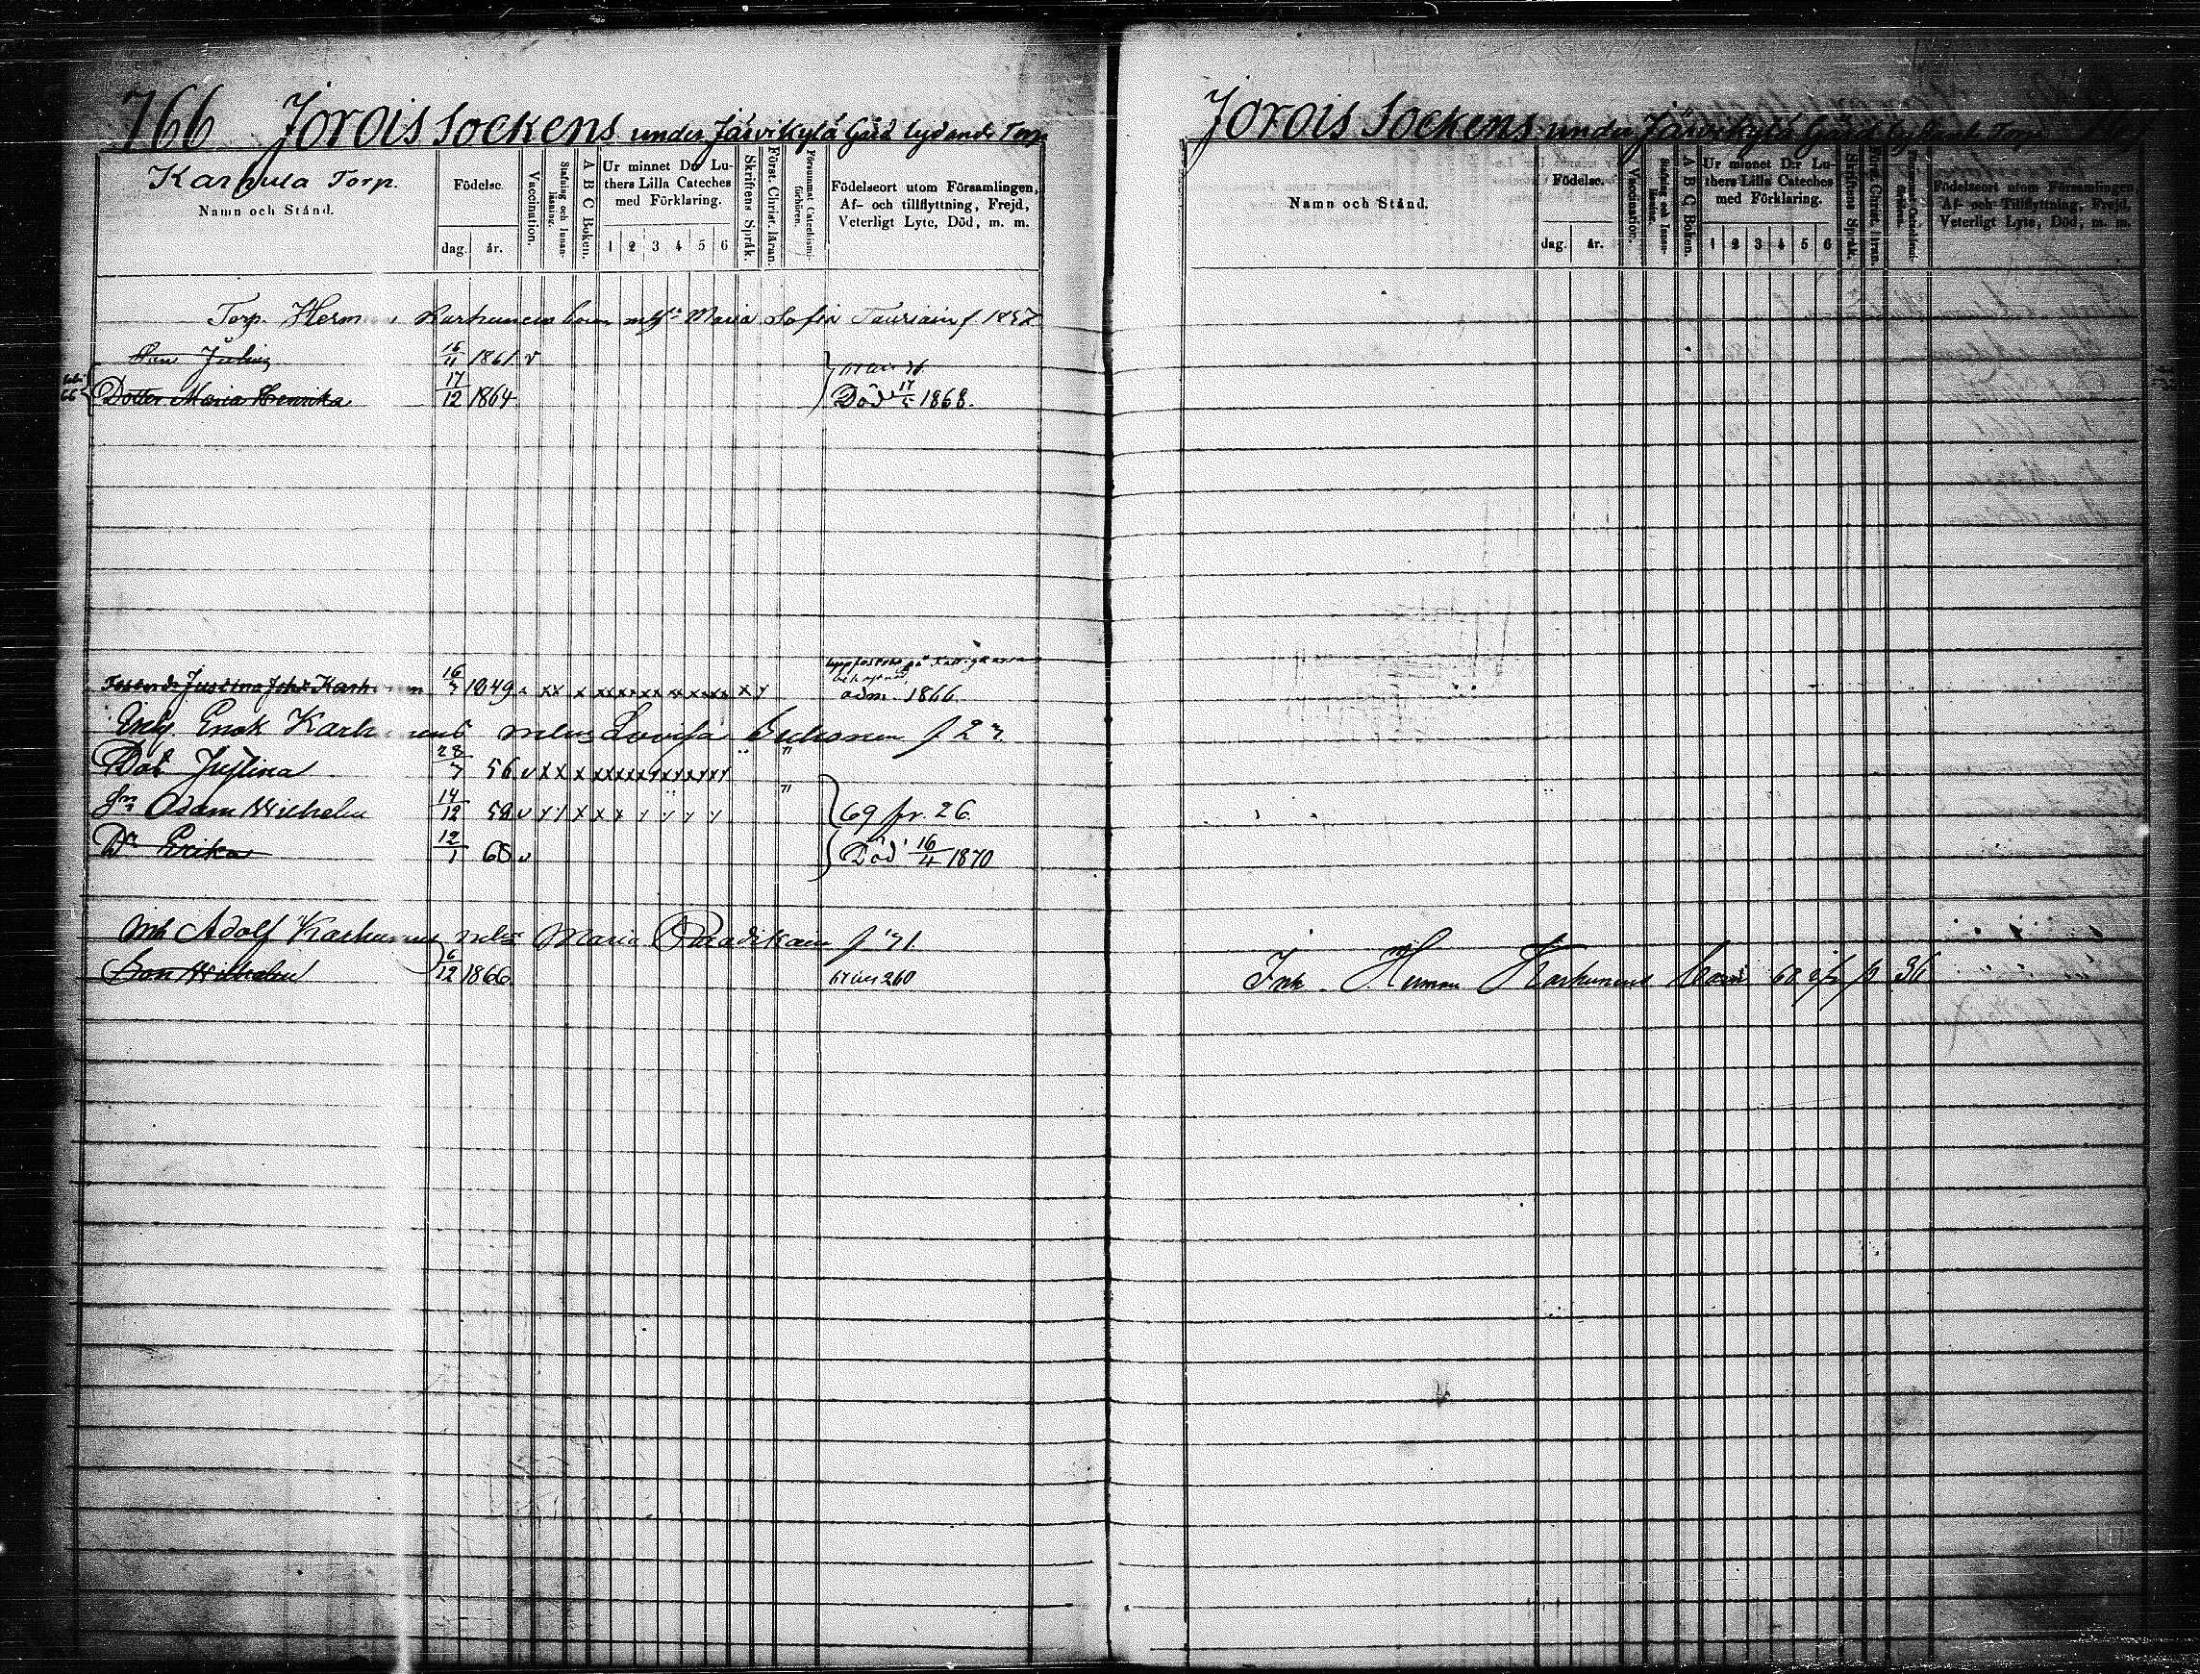 766 Jorois Sockens under Järvikylä Gård lydande Torp.
Karhula Torp.
Namn och Stånd.
Födelse.
dag. år.
Vaccination.
Stafning och Innan-läsning.
A B C Boken.
Ur minnet D:r Lu-
thers Lilla Cateches
med Förklaring.
1 2 3 4 5 6
Skriftens Språk.
Först. Christ. läran.
Försummat Catechismi-förhören.
Födelseort utom Församlingen,
Af- och tillflyttning, Frejd,
Veterligt Lyte, Död, m. m.
Torp. Herman Karhunens barn m. Maria Sofia Tauriain f. 1857
Son Julius 16/11 1861 v
66 Dotter Maria Henrika 17/12 1864 Död 17/5 1868.
Justina Joh:dr Karhunen 16/7 1849 x xx x xxxxxxxxxxxx x x adm. 1866.
Inhy. Enok Karhunens Lovisa f 27.
Dot. Justina 28/7 56 v x x x xxxxxxxxxxxx
Sn Adam Wilhelm 14/12 59 v x x x x x 69 fr. 26
Dr Erika 12/1 65 v Död 16/4 1870
Inh Adolf Karhunens Maria Paradikain f 31.
Son Wilhelm 6/12 1866 260
Jorois Sockens under Järvikylä Gård lydande Torp
Namn och Stånd.
Födelse.
dag. år.
Vaccination.
Stafning och Innan-läsning.
A B C Boken.
Ur minnet D:r Lu-
thers Lilla Cateches
med Förklaring.
1 2 3 4 5 6
Skriftens Språk.
Först. Christ. läran.
Försummat Catechismi-förhören.
Födelseort utom Församlingen,
Af- och Tillflyttning, Frejd,
Veterligt Lyte, Död, m. m.
Inh. Herman Karhunens barn 68 p 36